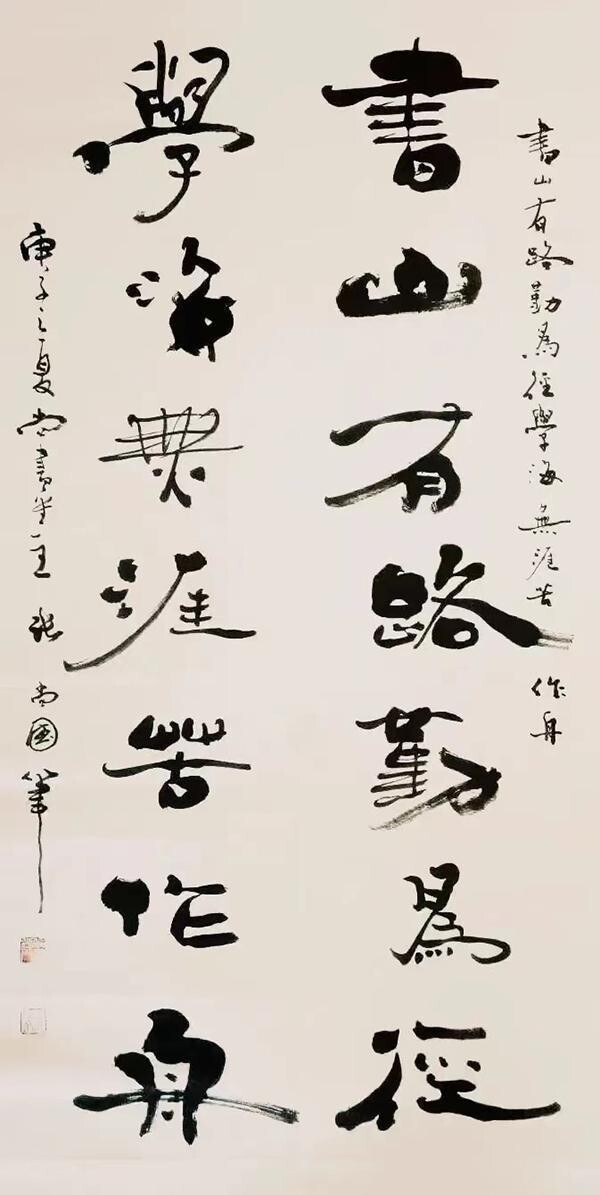 書山有路勤為徑學海無涯苦作舟
書山有路勤為徑
學海無涯苦作舟
庚子之夏尚書堂主張尚國筆